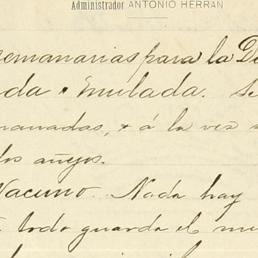 Administrador ANTONIO HERRÁN
semanarias para la De
da o mulada. Se
manadas, & á la vez s
los añejos.
Vacuno. Nada hay
todo guarda el mi